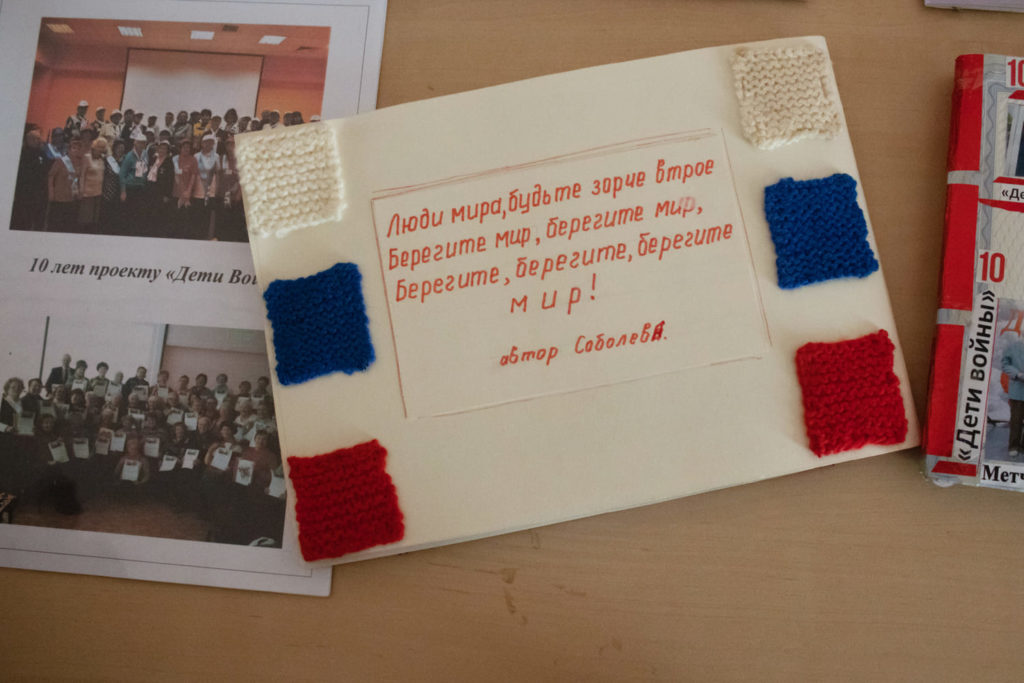 10 лет проекту «Дети
Люди мира, будьте зорче втрое
Берегите мир, берегите мир,
Берегите, берегите, берегите
мир!
автор Соболева.
10
10
«Дети войны»